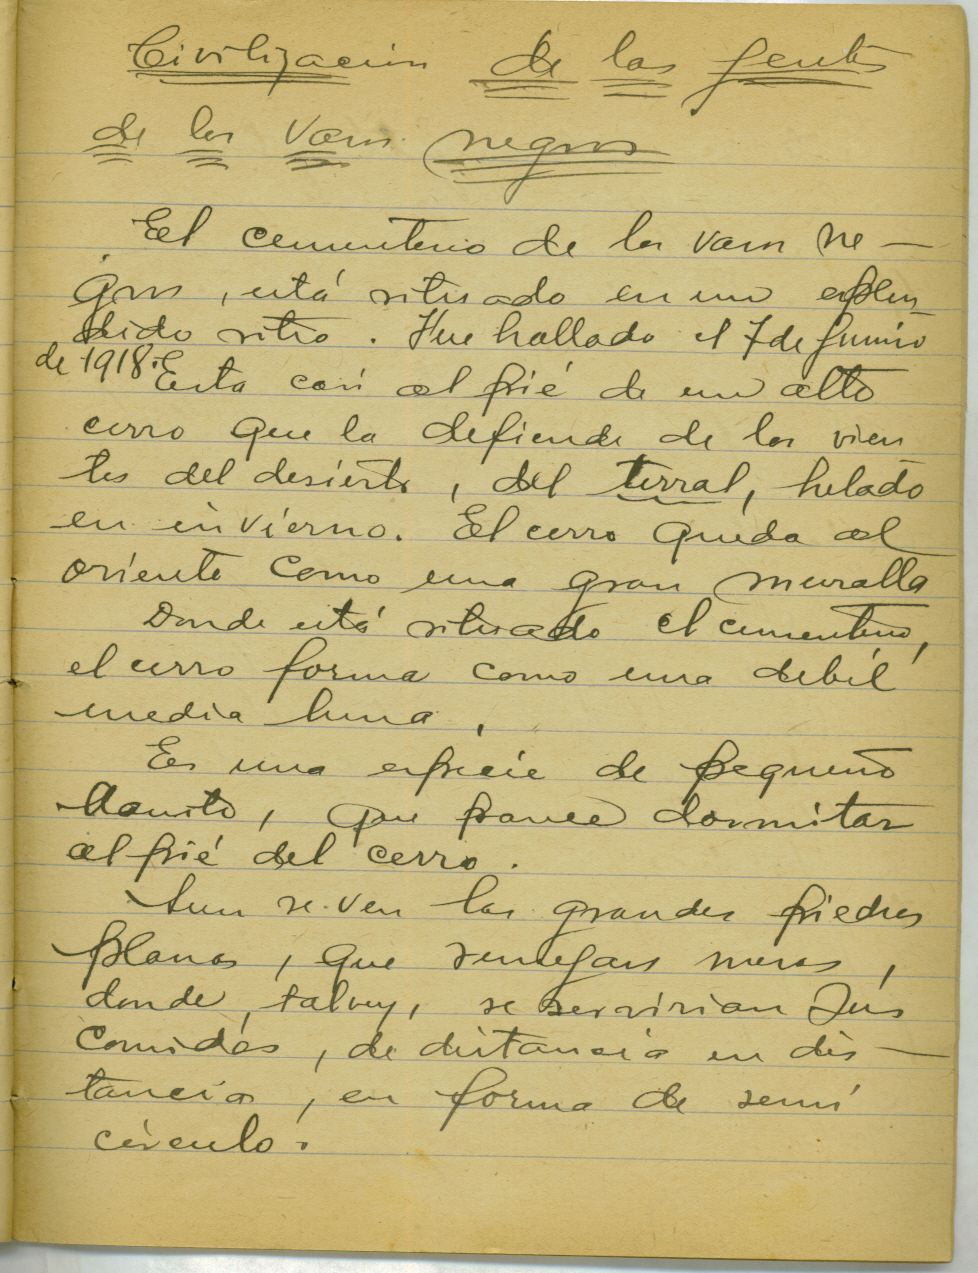 Civilización de las gentes
de los vasos negros
El cementerio de los vasos ne-
gros, está situado en un esplen-
dido sitio. Fue hallado el 7 de Junio
de 1918. Esta casi al pié de un alto
cerro que la defiende de los vien
tos del desierto, del terral, helado
en invierno. El cerro queda al
oriente como una gran muralla
Donde está situado el cementerio,
el cerro forma como una debil
media luna.
Es una especie de pequeño
llanito, que parece dormitar
al pié del cerro.
Aun se ven las grandes piedras
planas, que semejan mesas,
donde, talvez, se servirian sus
comidas, de distancia en dis-
tancia, en forma de semi
círculo.